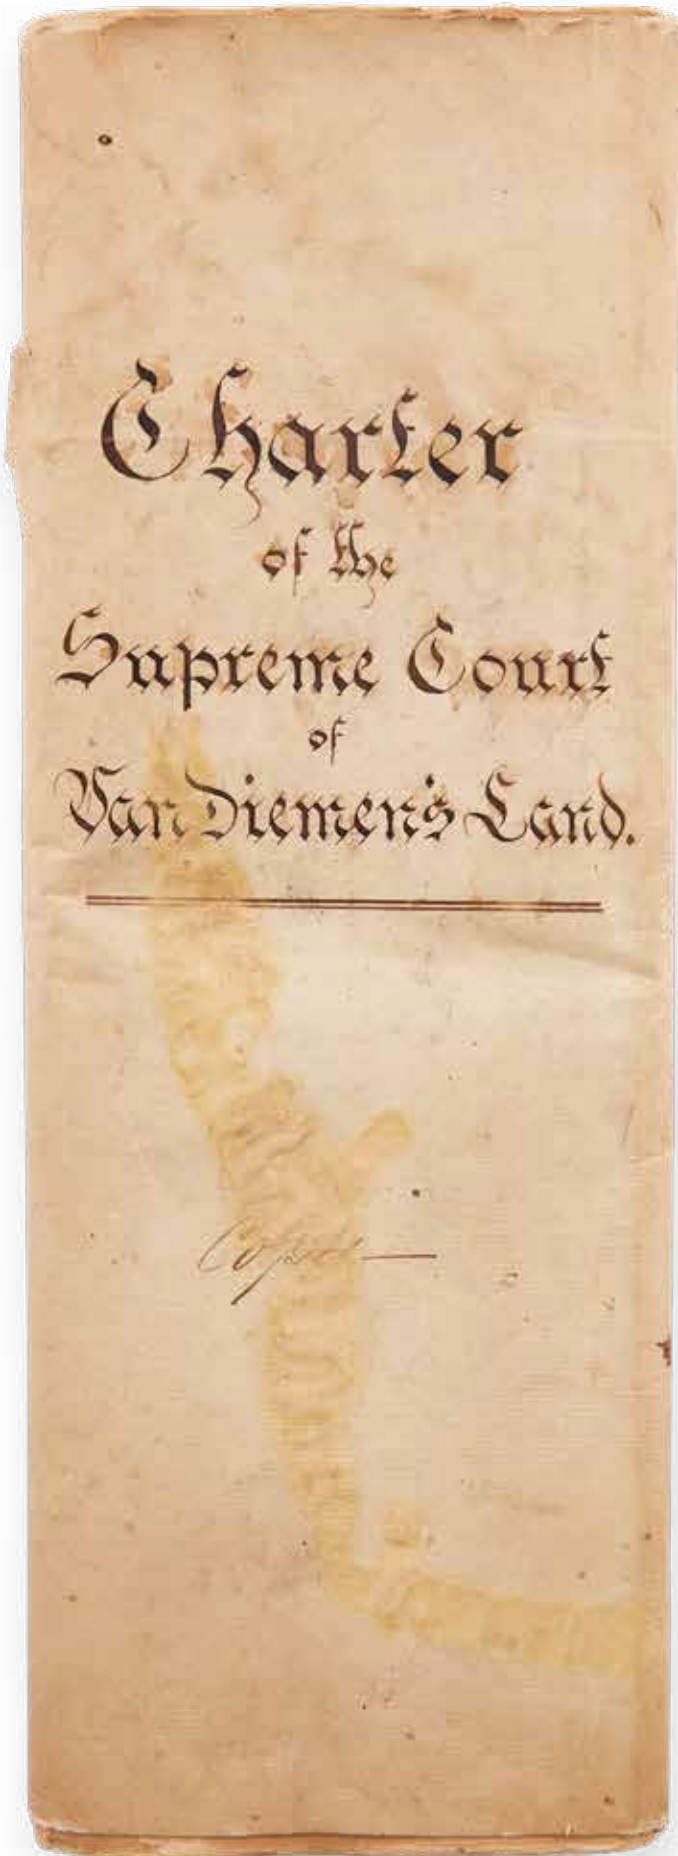 Charter
of the
Supreme Court
of
Van Diemen's Land.
Copy